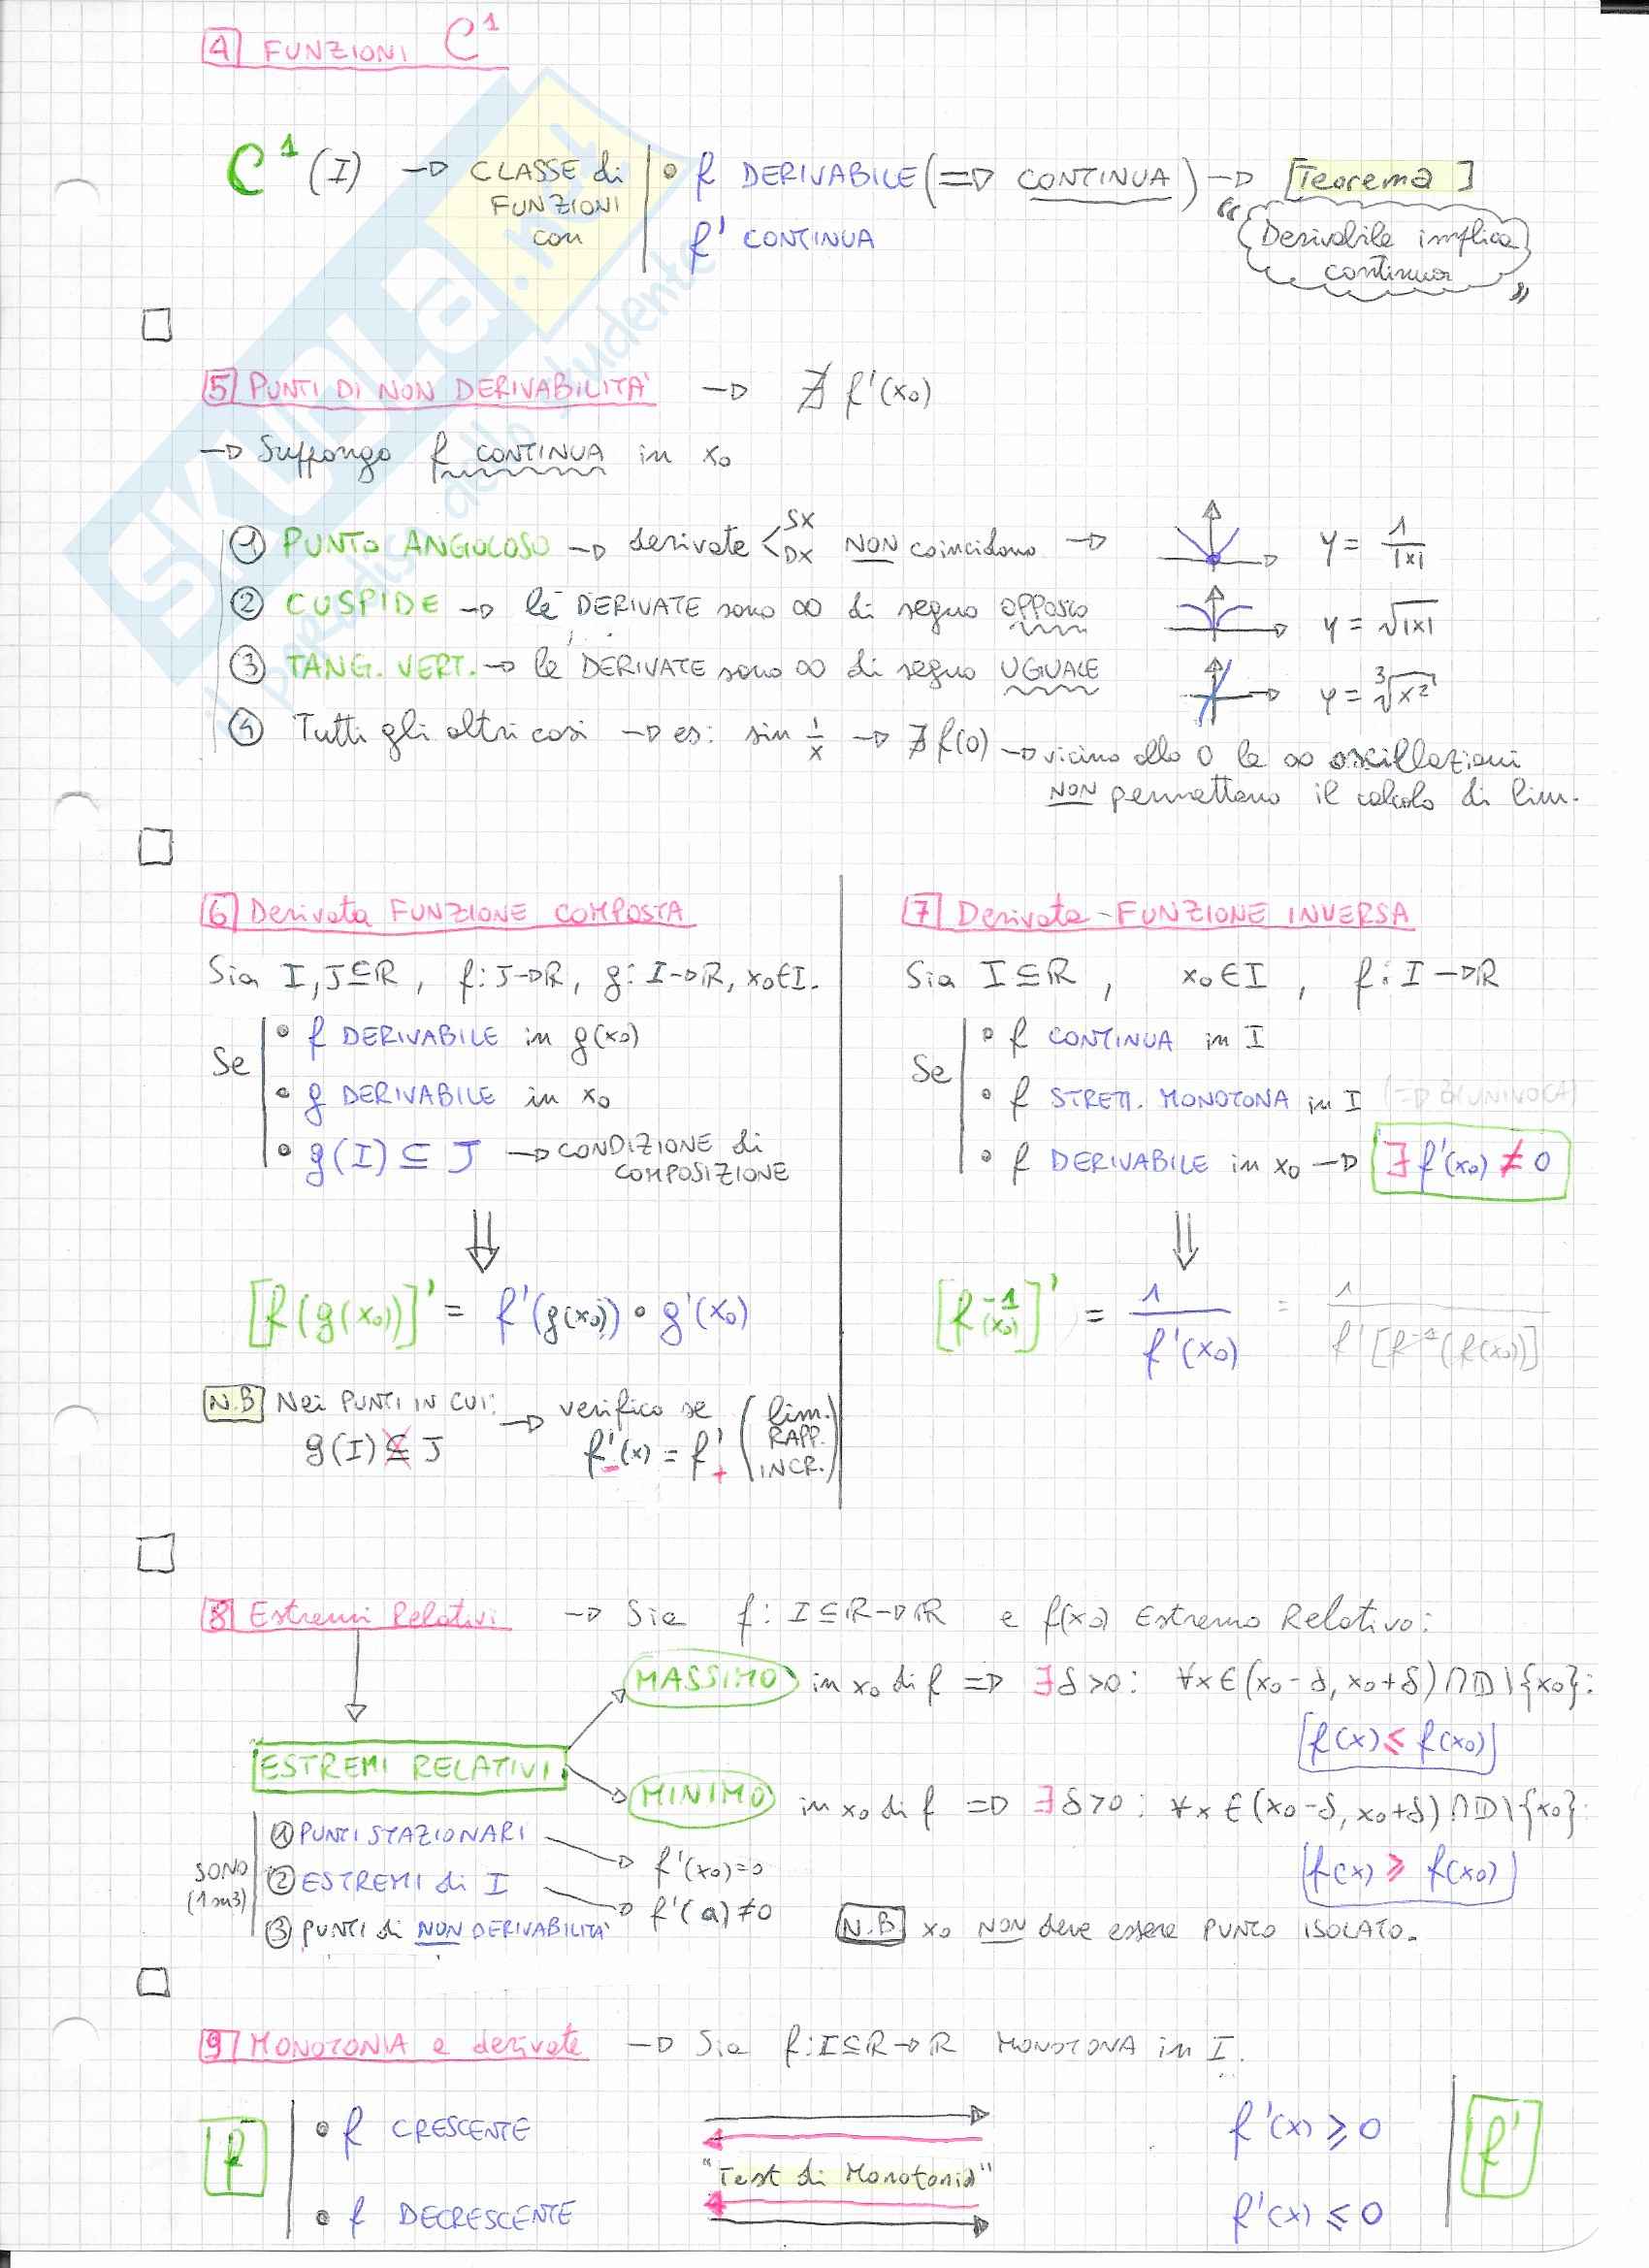 4 FUNZIONI C¹
C¹(I) → CLASSE di FUNZIONI con
• f DERIVABILE (⇒ CONTINUA) → [Teorema]
f' CONTINUA
"Derivabile implica continua"
5 PUNTI DI NON DERIVABILITA' → ∄ f'(x₀)
→ Suppongo f CONTINUA in x₀
① PUNTO ANGOLOSO → derivate < SX DX NON coincidono → y = 1/|x|
② CUSPIDE → le DERIVATE sono ∞ di segno OPPOSTO y = √|x|
③ TANG. VERT. → le DERIVATE sono ∞ di segno UGUALE y = ³√x²
④ Tutti gli altri casi → es: sin 1/x → ∄ f(0) → vicino allo 0 le ∞ oscillazioni
NON permettono il calcolo di lim.
6 Derivata FUNZIONE COMPOSTA
Sia I, J ⊆ ℝ, f: J→ℝ, g: I→ℝ, x₀∈I.
Se
• f DERIVABILE in g(x₀)
• g DERIVABILE in x₀
• g(I) ⊆ J → CONDIZIONE di COMPOSIZIONE
⇓
[f(g(x₀))]' = f'(g(x₀)) ∘ g'(x₀)
N.B Nei PUNTI IN CUI: → verifico se (lim. RAPP. INCR.)
g(I) ⊈ J f'₋(x) = f'₊
7 Derivata - FUNZIONE INVERSA
Sia I ⊆ ℝ, x₀ ∈ I, f: I → ℝ
Se
• f CONTINUA in I
• f STRETT. MONOTONA in I (⇒ BIUNIVOCA)
• f DERIVABILE in x₀ → ∃ f'(x₀) ≠ 0
⇓
[f⁻¹(x₀)]' = 1/f'(x₀) = 1/f'[f⁻¹(f(x₀))]
8 Estremi Relativi → Sia f: I ⊆ ℝ → ℝ e f(x₀) Estremo Relativo:
MASSIMO in x₀ di f ⇒ ∃ δ>0: ∀x ∈ (x₀-δ, x₀+δ) ∩ D \ {x₀}:
[f(x) ≤ f(x₀)]
ESTREMI RELATIVI
MINIMO in x₀ di f ⇒ ∃ δ>0: ∀x ∈ (x₀-δ, x₀+δ) ∩ D \ {x₀}:
[f(x) ≥ f(x₀)]
SONO (1 su 3)
① PUNTI STAZIONARI → f'(x₀)=0
② ESTREMI di I → f'(a) ≠ 0
③ PUNTI di NON DERIVABILITA'
N.B x₀ NON deve essere PUNTO ISOLATO.
9 MONOTONIA e derivate → Sia f: I ⊆ ℝ → ℝ MONOTONA in I.
f
• f CRESCENTE f'(x) ≥ 0
"Test di Monotonia"
• f DECRESCENTE f'(x) ≤ 0
f'
SKUOLA.net
il paradiso dello studente